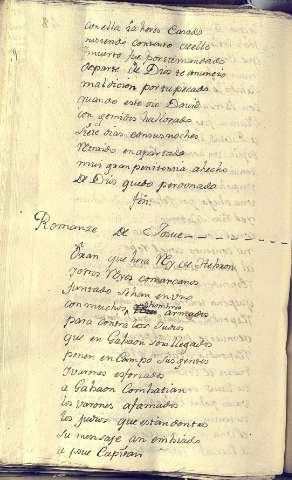 con ella la heres Casado
muriendo con
muerto fue por tu mandado
de parte de Dios te anunçio
maldicion por tu pecado
quando esto oio David
con gemidos ha llorado
siete dias con sus noches
llorando en apartado
mui gran penitenzia a hecho
de Dios quedo perdonado
fin.
Romanze De Josue
Oran que hera Rey de Hebron
y otros Reyes comarcanos
Juntado se han en uno
con muchos hombres armados
para contra los Judios
que en Gabaon son llegados
ponen en Campo sus gentes
esforzados
a Gabaon Combatian
los varones afamados
los Judios que estan dentro
su mensaje an embiado
a Josue Capitan